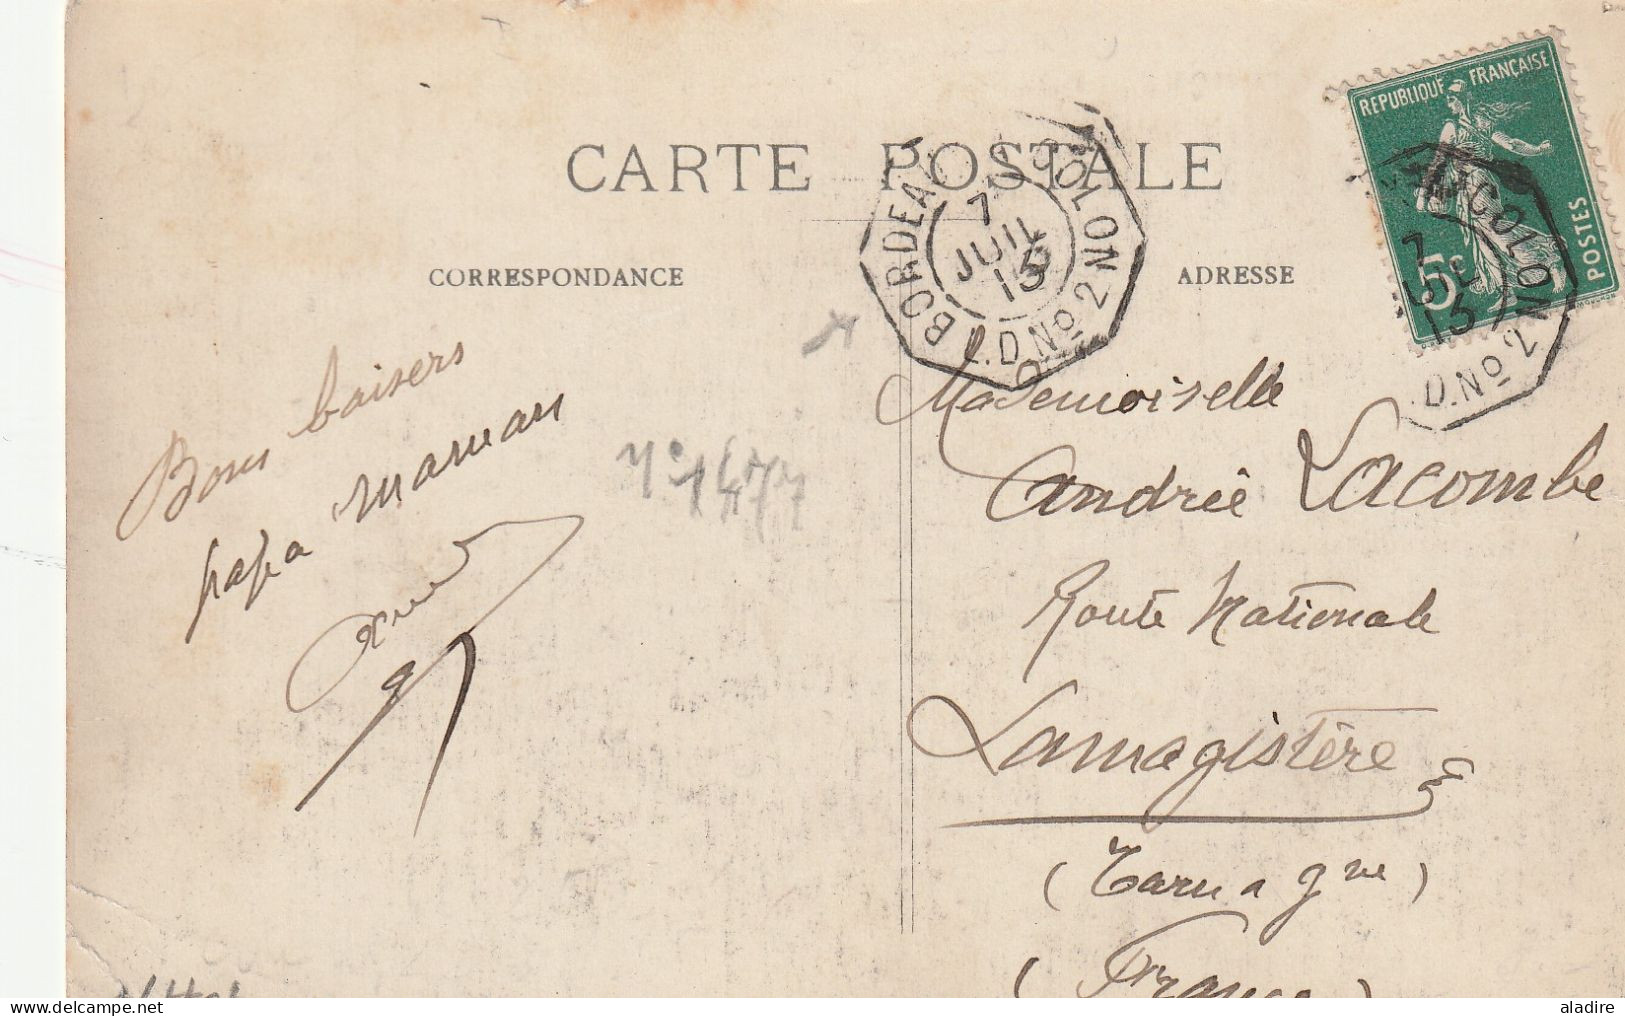 CARTE POSTALE
CORRESPONDANCE
ADRESSE
REPUBLIQUE FRANÇAISE
POSTES
5c
BORDEAUX COLON
L.D Nº 2
7
JUIL
13
COLON
D.Nº 2
7
13
Bons baisers
papa maman
n° 1477
Mademoiselle
Andrée Lacombe
Route Nationale
Lamagistère
(Tarn a gne)
(France)
aladire